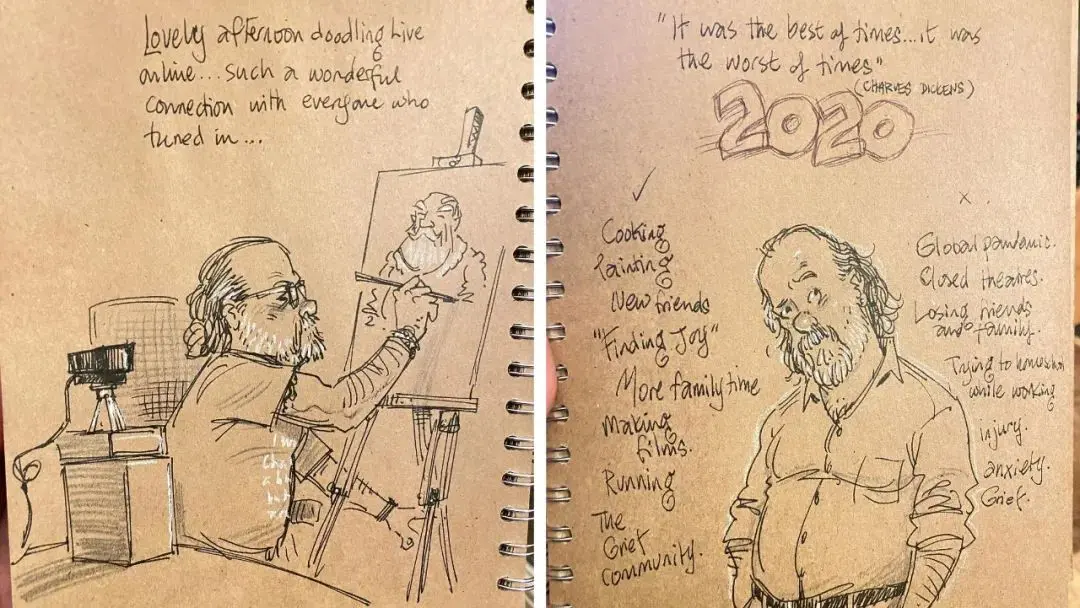 Lovely afternoon doodling Live
online... such a wonderful
connection with everyone who
tuned in...
2
"It was the best of times...it was
the worst of times"
(CHARLES DICKENS)
2020
✓
Cooking
Painting
New friends
"Finding Joy"
More family time
Making
films.
Running
The
Grief
community.
x
Global pandemic.
Closed theatres.
Losing friends
and family.
Trying to homeschool
while working
injury.
anxiety.
Grief.